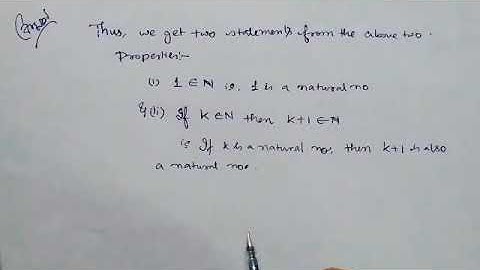 Thus, we get two statements from the above two
Properties:-
(i) 1 ∈ N ie, 1 is a natural no
& (ii) If K ∈ N then K+1 ∈ N
ie If K is a natural no, then K+1 is also
a natural no.